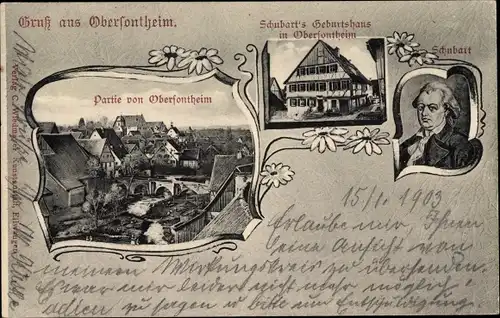 Gruß aus Obersontheim.
Schubart's Geburtshaus
in Obersontheim
Schubart
Partie von Obersontheim
15/1. 1903
Erlaube mir, Ihnen
eine Ansicht von
meinem Wirkungskreis zu übersenden.
Es war mir leider nicht mehr möglich
adieu zu sagen u. bitte um Entschuldigung.